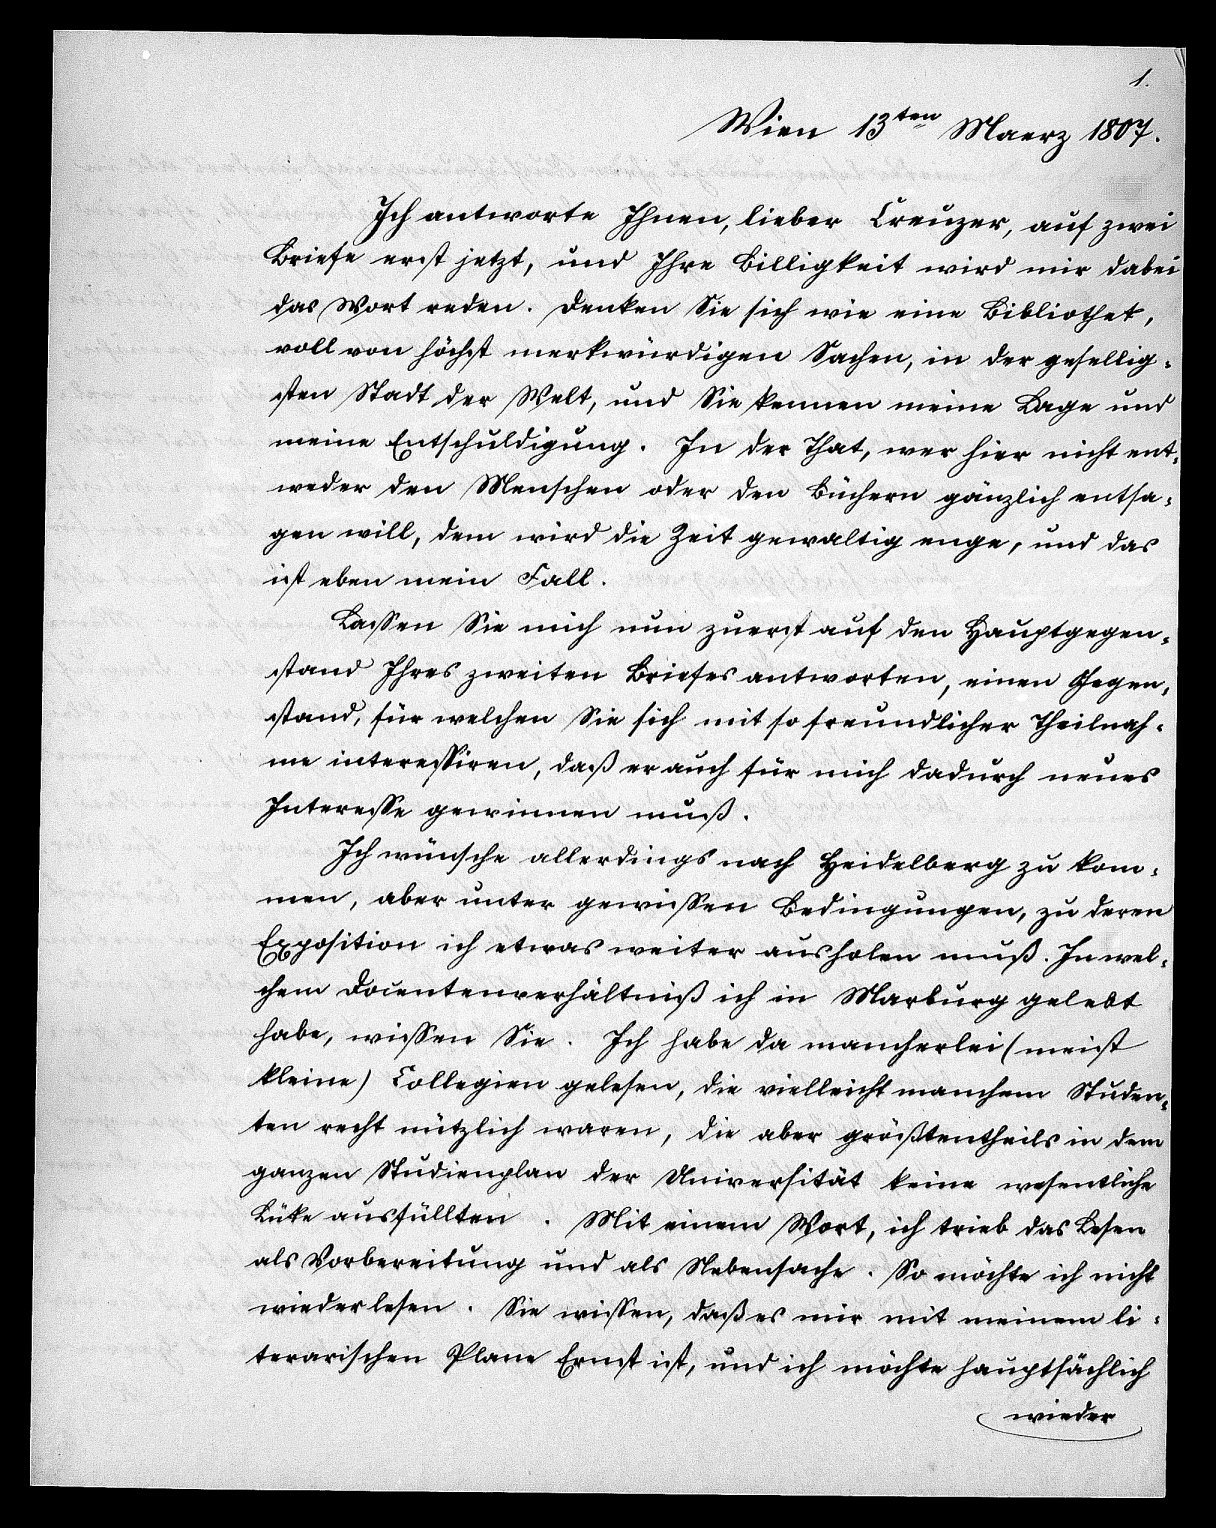 1.
Wien 13ten Maerz 1807.
Ich antworte Ihnen, lieber Creuzer, auf zwei
Briefe erst jetzt, und Ihre Billigkeit wird mir dabei
das Wort reden. Denken Sie sich wie eine Bibliothek,
voll von höchst merkwürdigen Sachen, in der gesellig-
sten Stadt der Welt, und Sie kennen meine Lage und
meine Entschuldigung. In der That, wer hier nicht ent-
weder den Menschen oder den Büchern gänzlich entsa-
gen will, dem wird die Zeit gewaltig enge, und das
ist eben mein Fall.
Lassen Sie mich nun zuerst auf den Hauptgegen-
stand Ihres zweiten Briefes antworten, einen Gegen-
stand, für welchen Sie sich mit so freundlicher Theilnah-
me interessiren, daß er auch für mich dadurch neues
Interesse gewinnen muß.
Ich wünsche allerdings nach Heidelberg zu kom-
men, aber unter gewissen Bedingungen, zu deren
Exposition ich etwas weiter ausholen muß. In wel-
chem Docentenverhältniß ich in Marburg gelebt
habe, wissen Sie. Ich habe da mancherlei (meist
kleine) Collegien gelesen, die vielleicht manchem Studen-
ten recht nützlich waren, die aber größtentheils in dem
ganzen Studienplan der Universität keine wesentliche
Lüke ausfüllten. Mit einem Wort, ich trieb das Lesen
als Vorbereitung und als Nebensache. So möchte ich nicht
wieder lesen. Sie wissen, daß es mir mit meinem li-
terarischen Plane Ernst ist, und ich möchte hauptsächlich
wieder